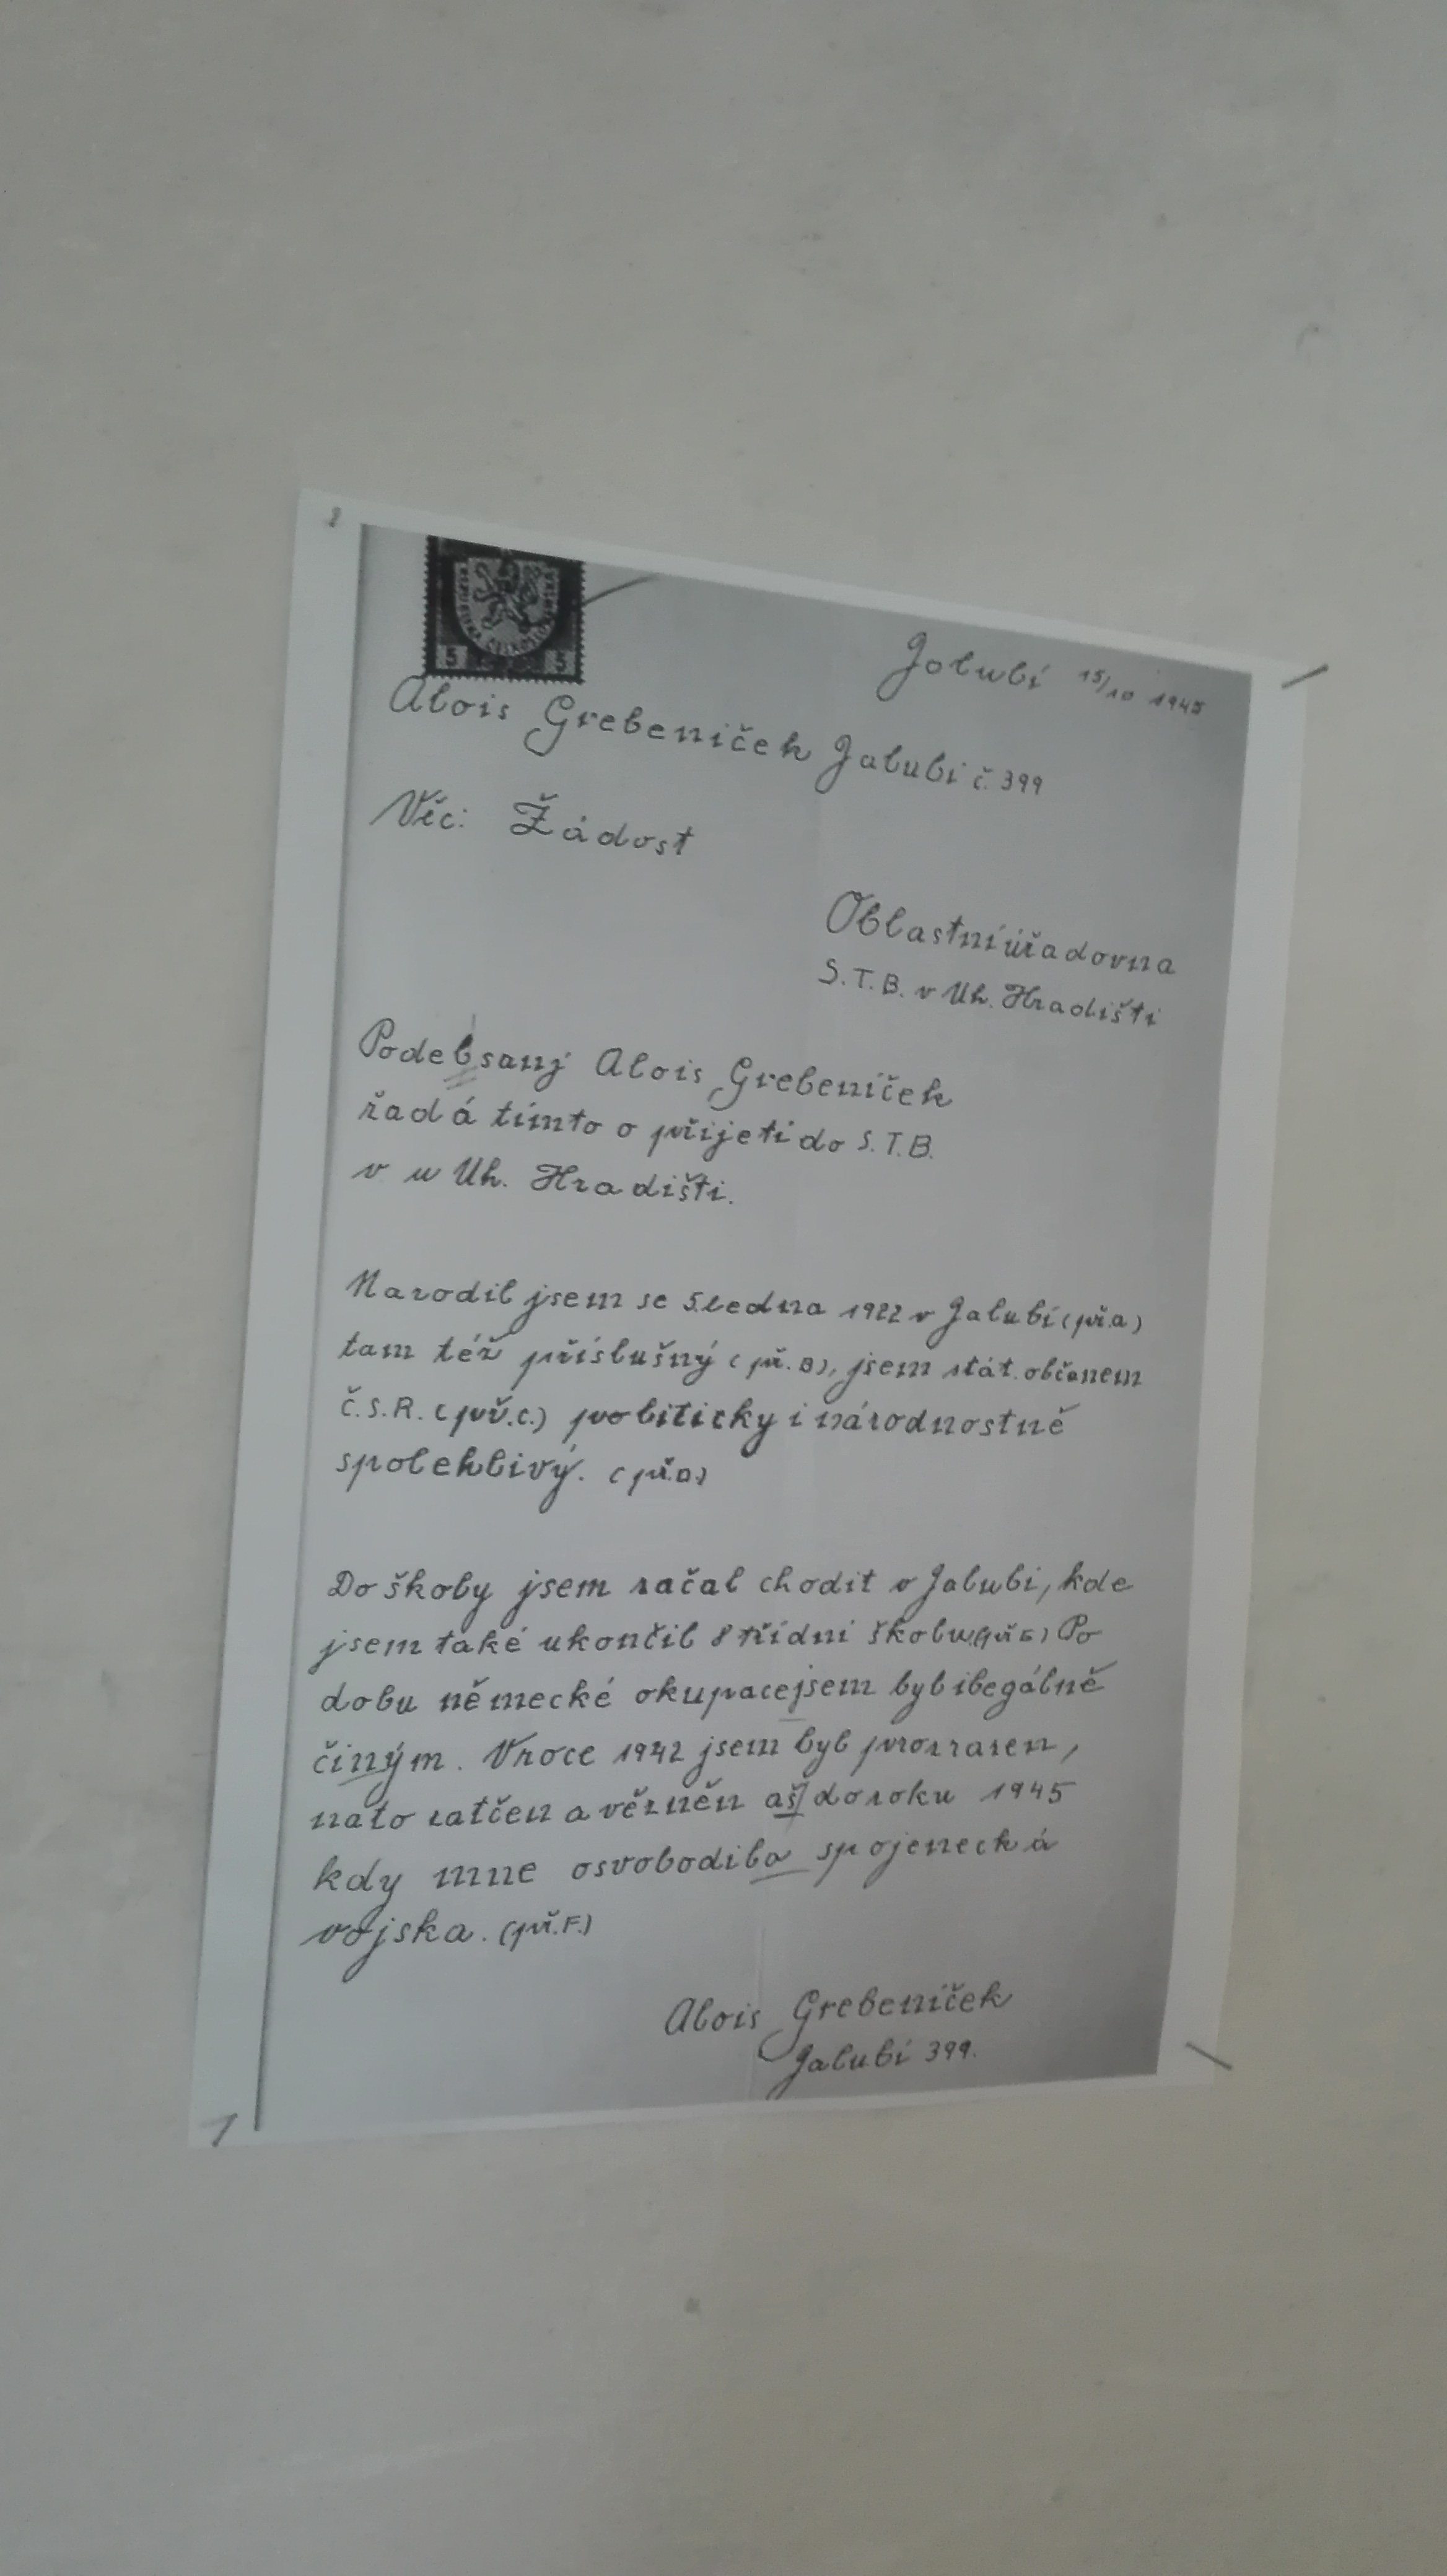 REPUBLIKA ČESKOSLOVENSKÁ
5 5
Jalubí 15/10 1945
Alois Grebeníček Jalubí č. 399
Věc: Žádost
Oblastní úřadovna
S.T.B. v Uh. Hradišti
Podebsaný Alois Grebeníček
žadá tímto o přijetí do S.T.B.
v u Uh. Hradišti.
Narodil jsem se 5. ledna 1922 v Jalubí (př.a)
tam též příslušný (př. B), jsem stát. občanem
Č.S.R. (př.C.) politicky i národnostně
spolehlivý. (př.D)
Do školy jsem začal chodit v Jalubi, kde
jsem také ukončil 8 třídní školu (př E) Po
dobu německé okupace jsem byl ilegálně
činým. V roce 1942 jsem byl prozrazen,
nato zatčen a vězněn aš do roku 1945
kdy mne osvobodila spojenecká
vojska. (př.F.)
Alois Grebeníček
Jalubí 399.